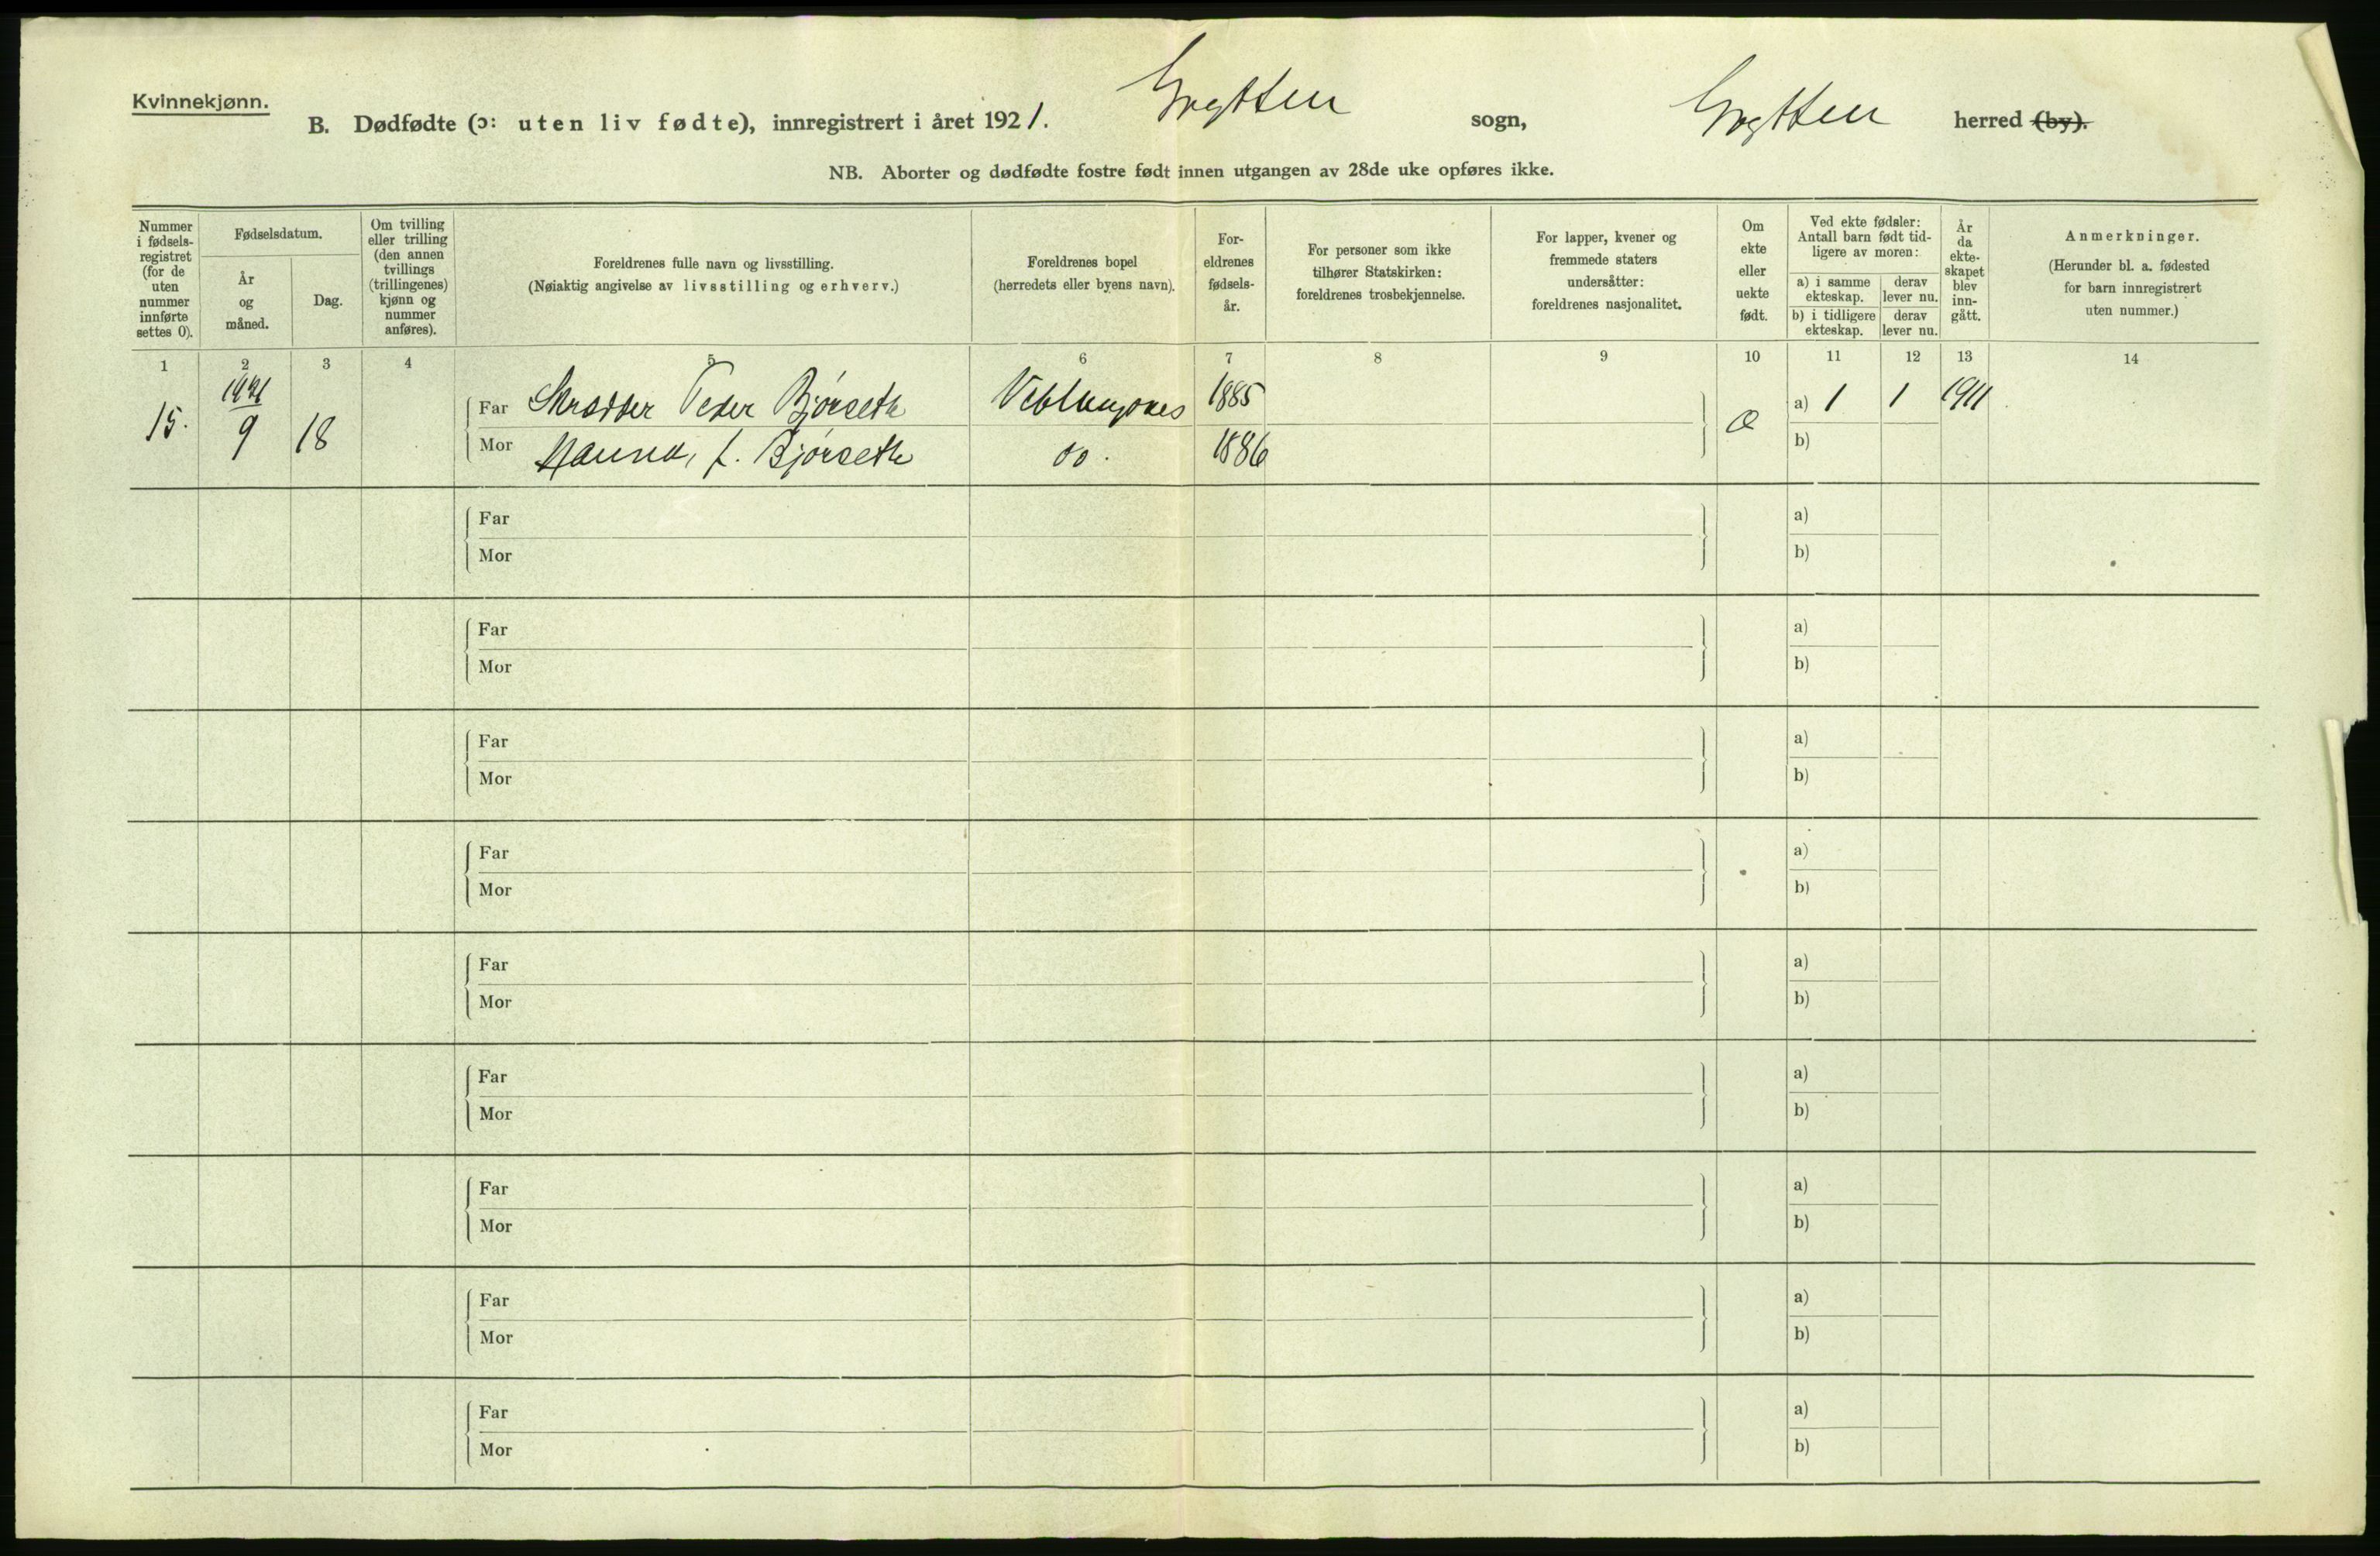 Kvinnekjønn.
B. Dødfødte (ɔ: uten liv fødte), innregistrert i året 1921. Grytten sogn, Grytten herred (by).
NB. Aborter og dødfødte fostre født innen utgangen av 28de uke opføres ikke.
Nummer i fødsels-registret (for de uten nummer innførte settes 0).
Fødselsdatum.
År og måned.
Dag.
Om tvilling eller trilling (den annen tvillings (trillingenes) kjønn og nummer anføres).
Foreldrenes fulle navn og livsstilling.
(Nøiaktig angivelse av livsstilling og erhverv.)
Foreldrenes bopel
(herredets eller byens navn).
For-eldrenes fødsels-år.
For personer som ikke tilhører Statskirken: foreldrenes trosbekjennelse.
For lapper, kvener og fremmede staters undersåtter: foreldrenes nasjonalitet.
Om ekte eller uekte født.
Ved ekte fødsler: Antall barn født tid-ligere av moren:
a) i samme ekteskap.
derav lever nu.
b) i tidligere ekteskap.
derav lever nu.
År da ekte-skapet blev inn-gått.
Anmerkninger.
(Herunder bl. a. fødested for barn innregistrert uten nummer.)
1 2 3 4 5 6 7 8 9 10 11 12 13 14
15. 1921 9 18
Far Skrædder Peder Bjørseth Veblungsnes 1885 a) 1 1 1911
Mor Hanna, f. Bjørseth do. 1886 b)
Far a)
Mor b)
Far a)
Mor b)
Far a)
Mor b)
Far a)
Mor b)
Far a)
Mor b)
Far a)
Mor b)
Far a)
Mor b)
Far a)
Mor b)
Far a)
Mor b)